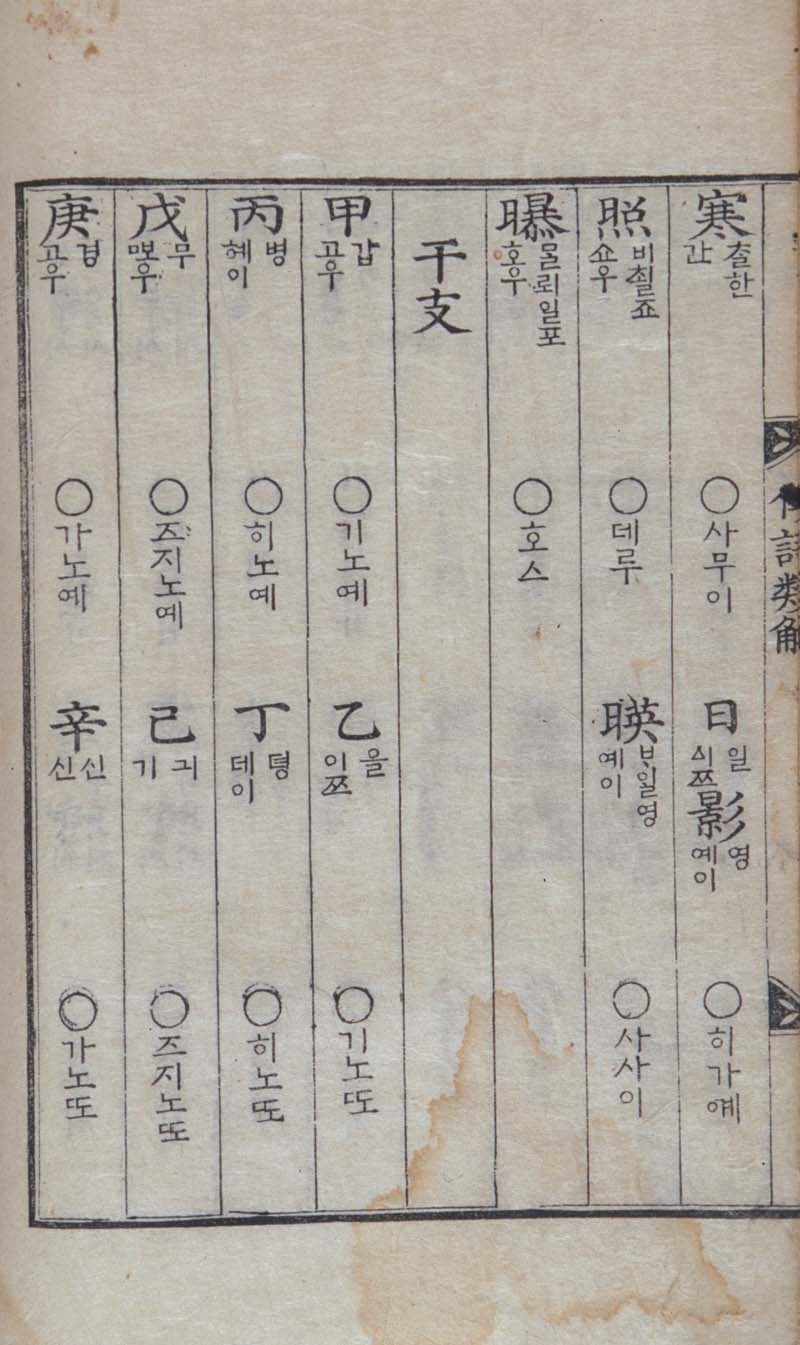 倭語類解
寒 찰한 간 ○사무이 日 일 시쯔 影 영 예이 ○히가몌
照 비쵤죠 쇼우 ○데루 暎 ᄇᆞ일영 예이 ○사사이
曝 몰뢰일포 호우 ○호스
干支
甲 갑 고우 ○기노예 乙 을 이쯔 ○기노또
丙 병 혜이 ○히노예 丁 뎡 데이 ○히노또
戊 무 뽀우 ○즈지노예 己 긔 기 ○즈지노또
庚 경 고우 ○가노예 辛 신 신 ○가노또